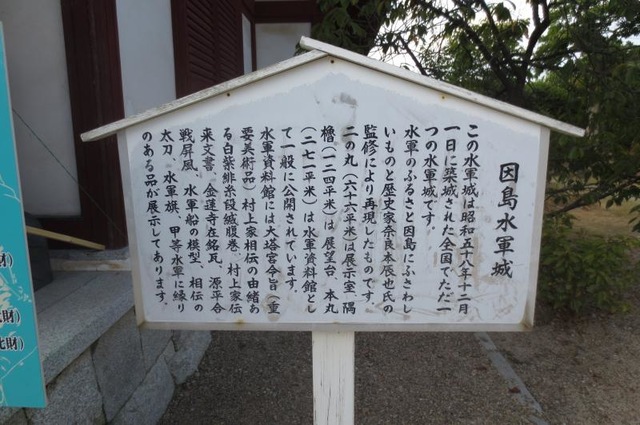 因島水軍城
この水軍城は昭和五十八年十二月
一日に築城された全国でただ一
つの水軍城です。
水軍のふるさと因島にふさわし
いものと歴史家奈良本辰也氏の
監修により再現したものです。
二の丸(六六平米)は展示室、隅
櫓(一二四平米)は展望台、本丸
(二七一平米)は水軍資料館とし
て一般に公開されています。
水軍資料館には大塔宮令旨(重
要美術品)村上家相伝の由緒あ
る白紫緋糸段縅腹巻、村上家伝
来文書、金蓮寺在銘瓦、源平合
戦屏風、水軍船の模型、相伝の
太刀、水軍旗、甲等水軍に縁り
のある品が展示してあります。
財)
財)
財)